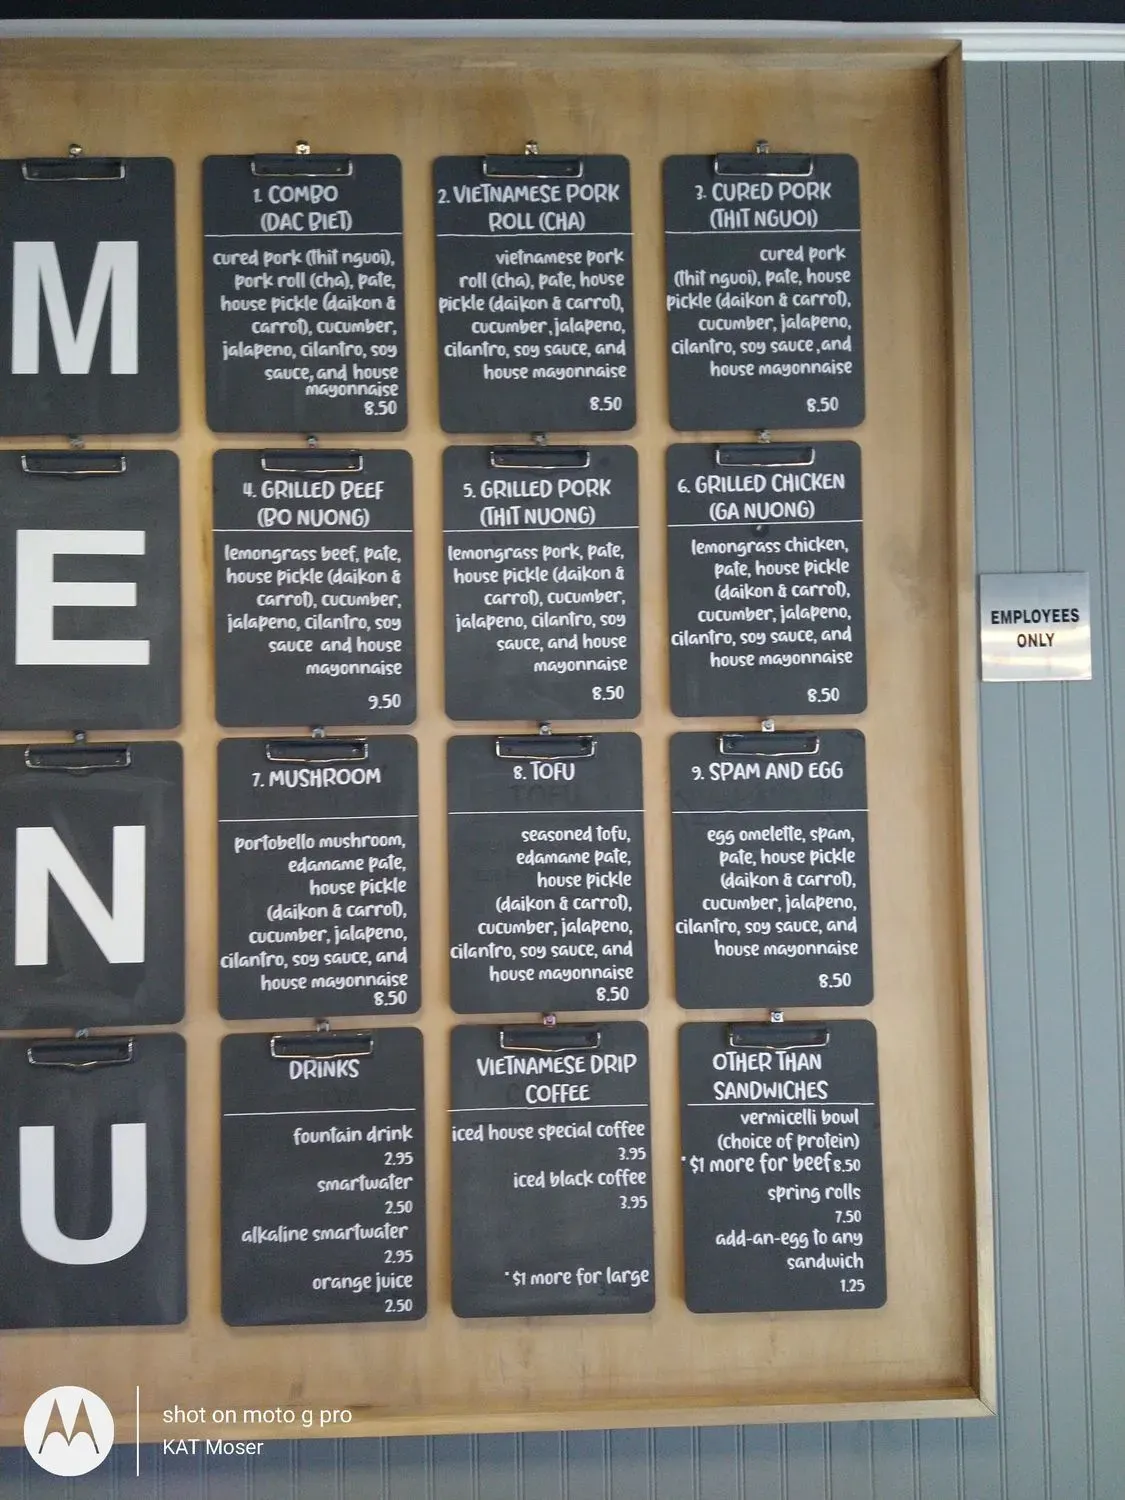 M
E
N
U
1. COMBO
(DAC BIET)
cured pork (thit nguoi),
pork roll (cha), pate,
house pickle (daikon &
carrot), cucumber,
jalapeno, cilantro, soy
sauce, and house
mayonnaise
8.50
2. VIETNAMESE PORK
ROLL (CHA)
vietnamese pork
roll (cha), pate, house
pickle (daikon & carrot),
cucumber, jalapeno,
cilantro, soy sauce, and
house mayonnaise
8.50
3. CURED PORK
(THIT NGUOI)
cured pork
(thit nguoi), pate, house
pickle (daikon & carrot),
cucumber, jalapeno,
cilantro, soy sauce, and
house mayonnaise
8.50
4. GRILLED BEEF
(BO NUONG)
lemongrass beef, pate,
house pickle (daikon &
carrot), cucumber,
jalapeno, cilantro, soy
sauce and house
mayonnaise
9.50
5. GRILLED PORK
(THIT NUONG)
lemongrass pork, pate,
house pickle (daikon &
carrot), cucumber,
jalapeno, cilantro, soy
sauce, and house
mayonnaise
8.50
6. GRILLED CHICKEN
(GA NUONG)
lemongrass chicken,
pate, house pickle
(daikon & carrot),
cucumber, jalapeno,
cilantro, soy sauce, and
house mayonnaise
8.50
7. MUSHROOM
portobello mushroom,
edamame pate,
house pickle
(daikon & carrot),
cucumber, jalapeno,
cilantro, soy sauce, and
house mayonnaise
8.50
8. TOFU
seasoned tofu,
edamame pate,
house pickle
(daikon & carrot),
cucumber, jalapeno,
cilantro, soy sauce, and
house mayonnaise
8.50
9. SPAM AND EGG
egg omelette, spam,
pate, house pickle
(daikon & carrot),
cucumber, jalapeno,
cilantro, soy sauce, and
house mayonnaise
8.50
DRINKS
fountain drink
2.95
smartwater
2.50
alkaline smartwater
2.95
orange juice
2.50
VIETNAMESE DRIP
COFFEE
iced house special coffee
3.95
iced black coffee
3.95
*$1 more for large
OTHER THAN
SANDWICHES
vermicelli bowl
(choice of protein)
*$1 more for beef 8.50
spring rolls
7.50
add-an-egg to any
sandwich
1.25
EMPLOYEES
ONLY
shot on moto g pro
KAT Moser